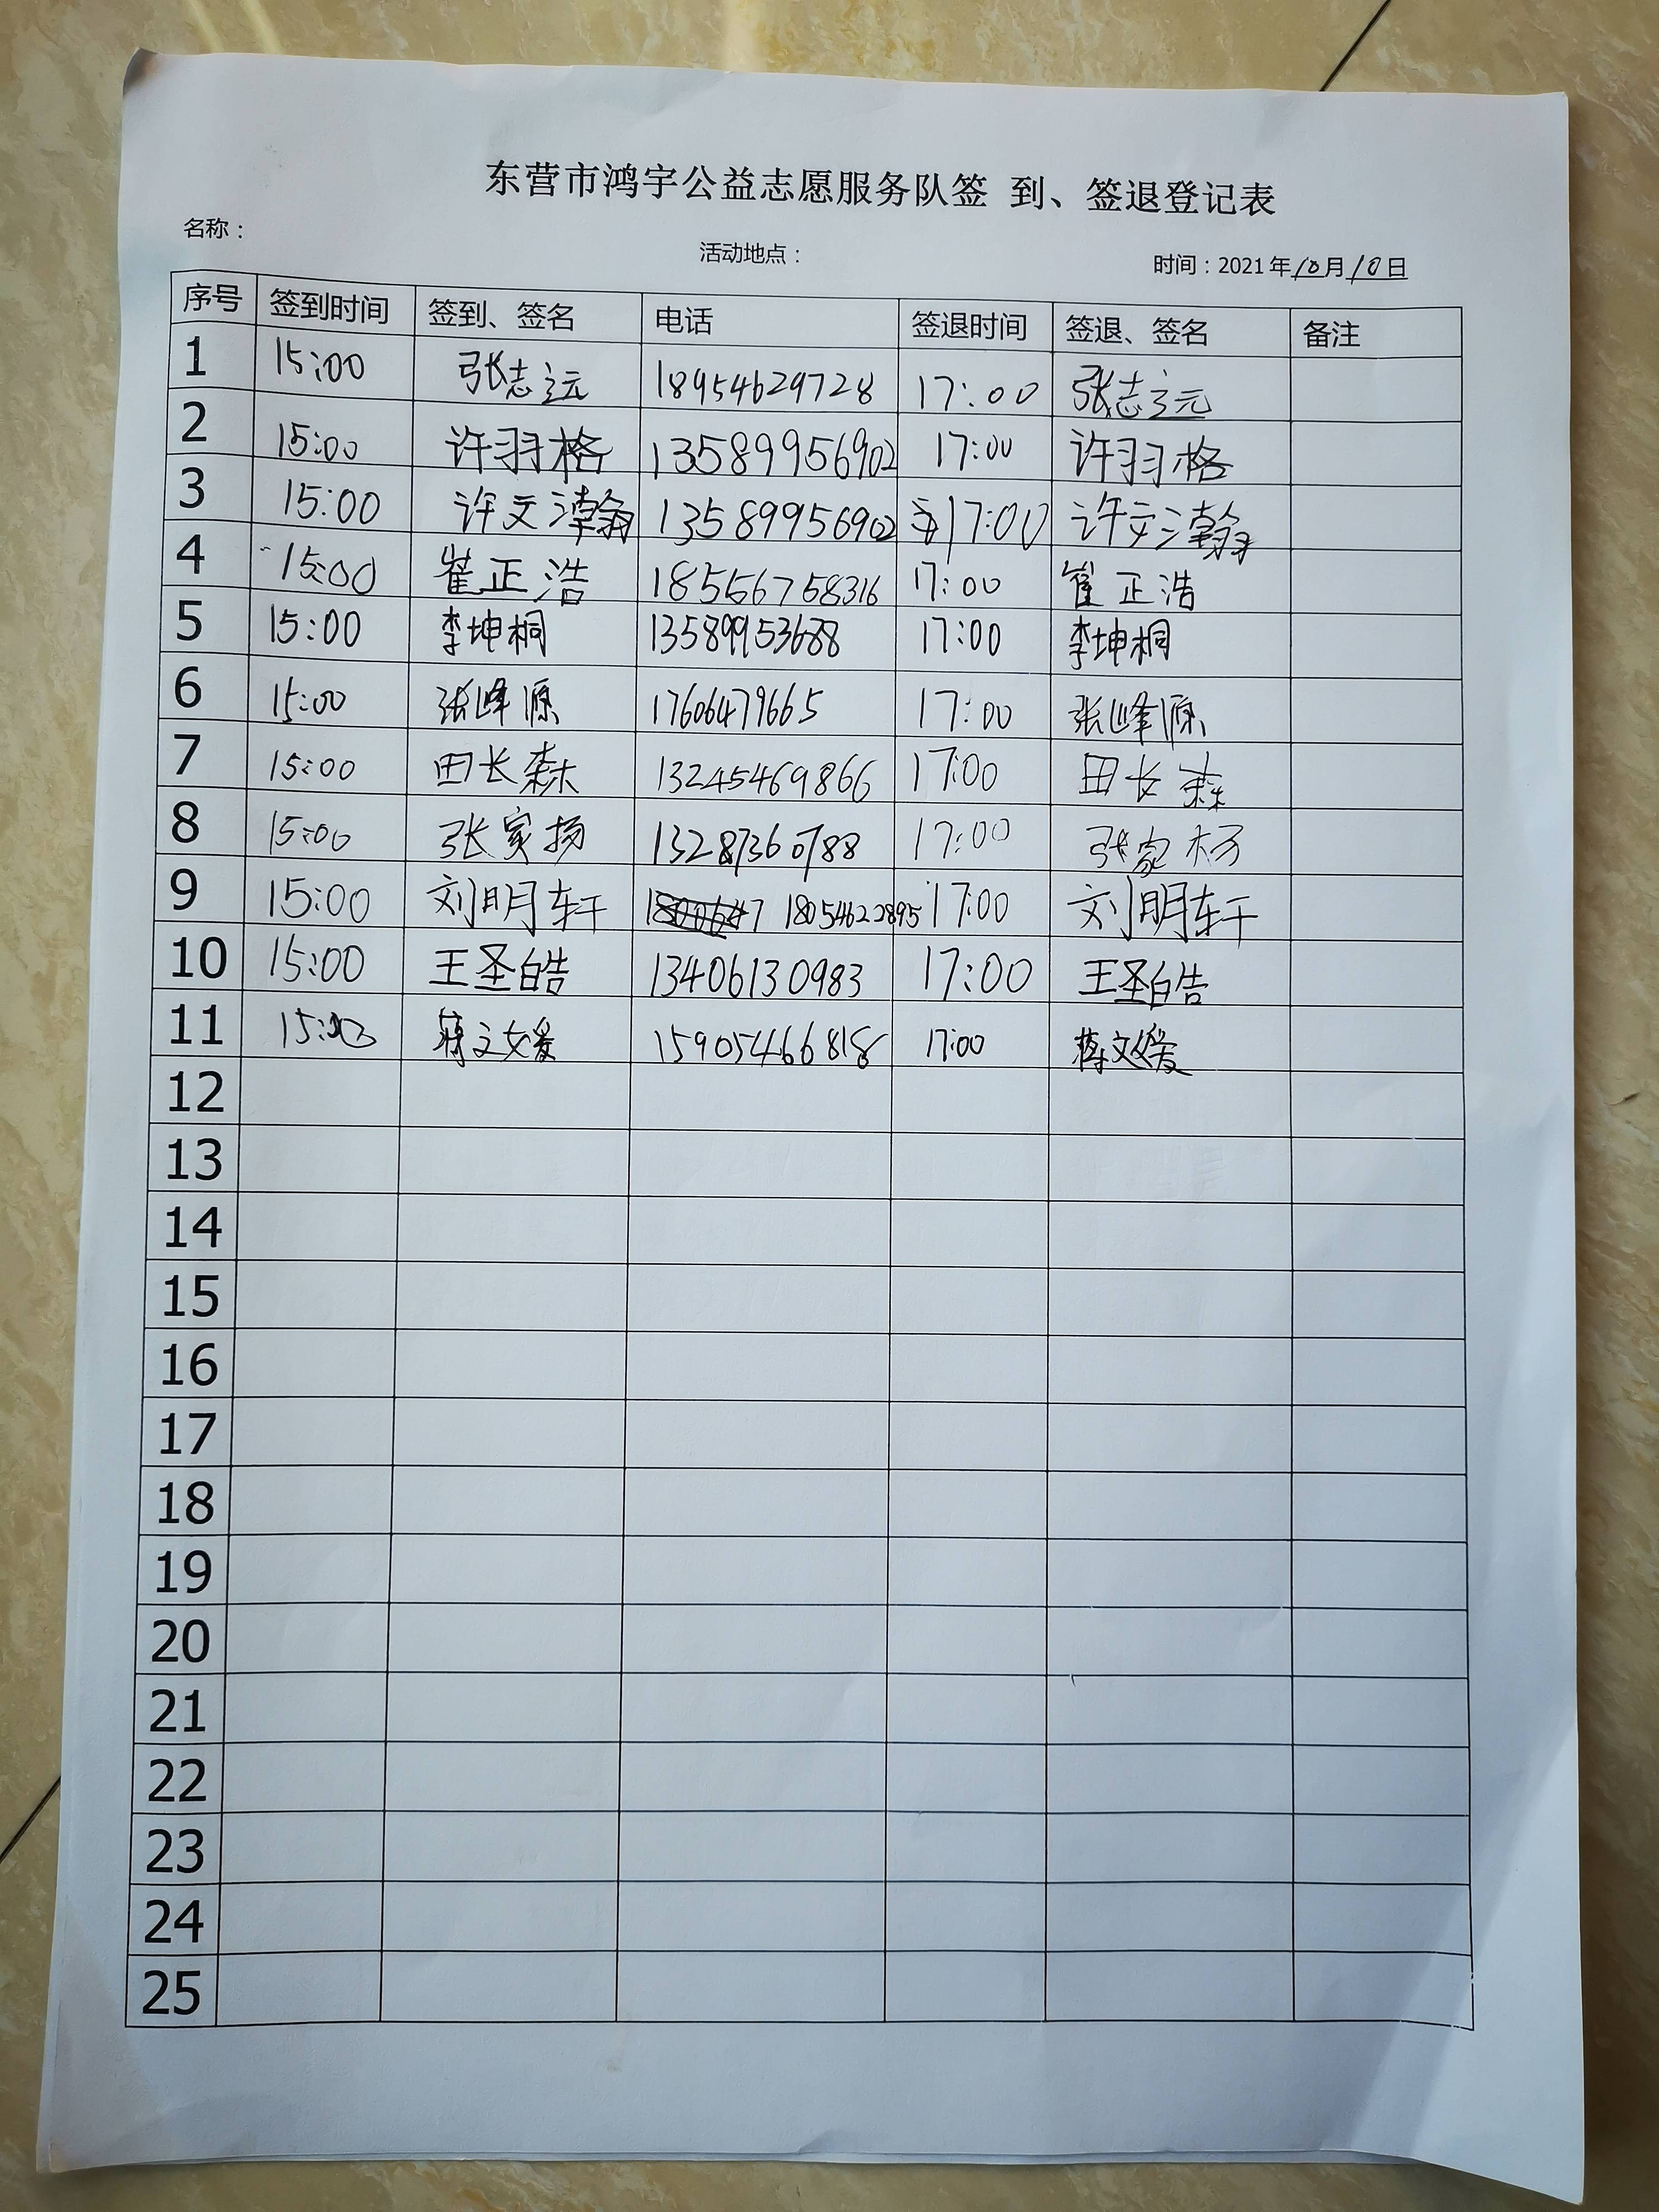 东营市鸿宇公益志愿服务队签 到、签退登记表
名称：
活动地点：
时间：2021年10月10日
序号 签到时间 签到、签名 电话 签退时间 签退、签名 备注
1 15:00 张志远 18954629728 17:00 张志远
2 15:00 许羽格 13589956902 17:00 许羽格
3 15:00 许文瀚 13589956902 17:00 许文瀚
4 15:00 崔正浩 18556758316 17:00 崔正浩
5 15:00 李坤桐 13589953688 17:00 李坤桐
6 15:00 张峰源 17606479665 17:00 张峰源
7 15:00 田长森 13245469866 17:00 田长森
8 15:00 张家扬 13287360788 17:00 张家杨
9 15:00 刘明轩 18054622895 17:00 刘明轩
10 15:00 王圣皓 13406130983 17:00 王圣皓
11 15:00 蒋文媛 15905466818 17:00 蒋文媛
12
13
14
15
16
17
18
19
20
21
22
23
24
25